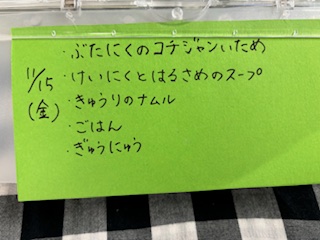 ・ぶたにくのコチジャンいため
11/15
・けいにくとはるさめのスープ
(金)
・きゅうりのナムル
・ごはん
・ぎゅうにゅう